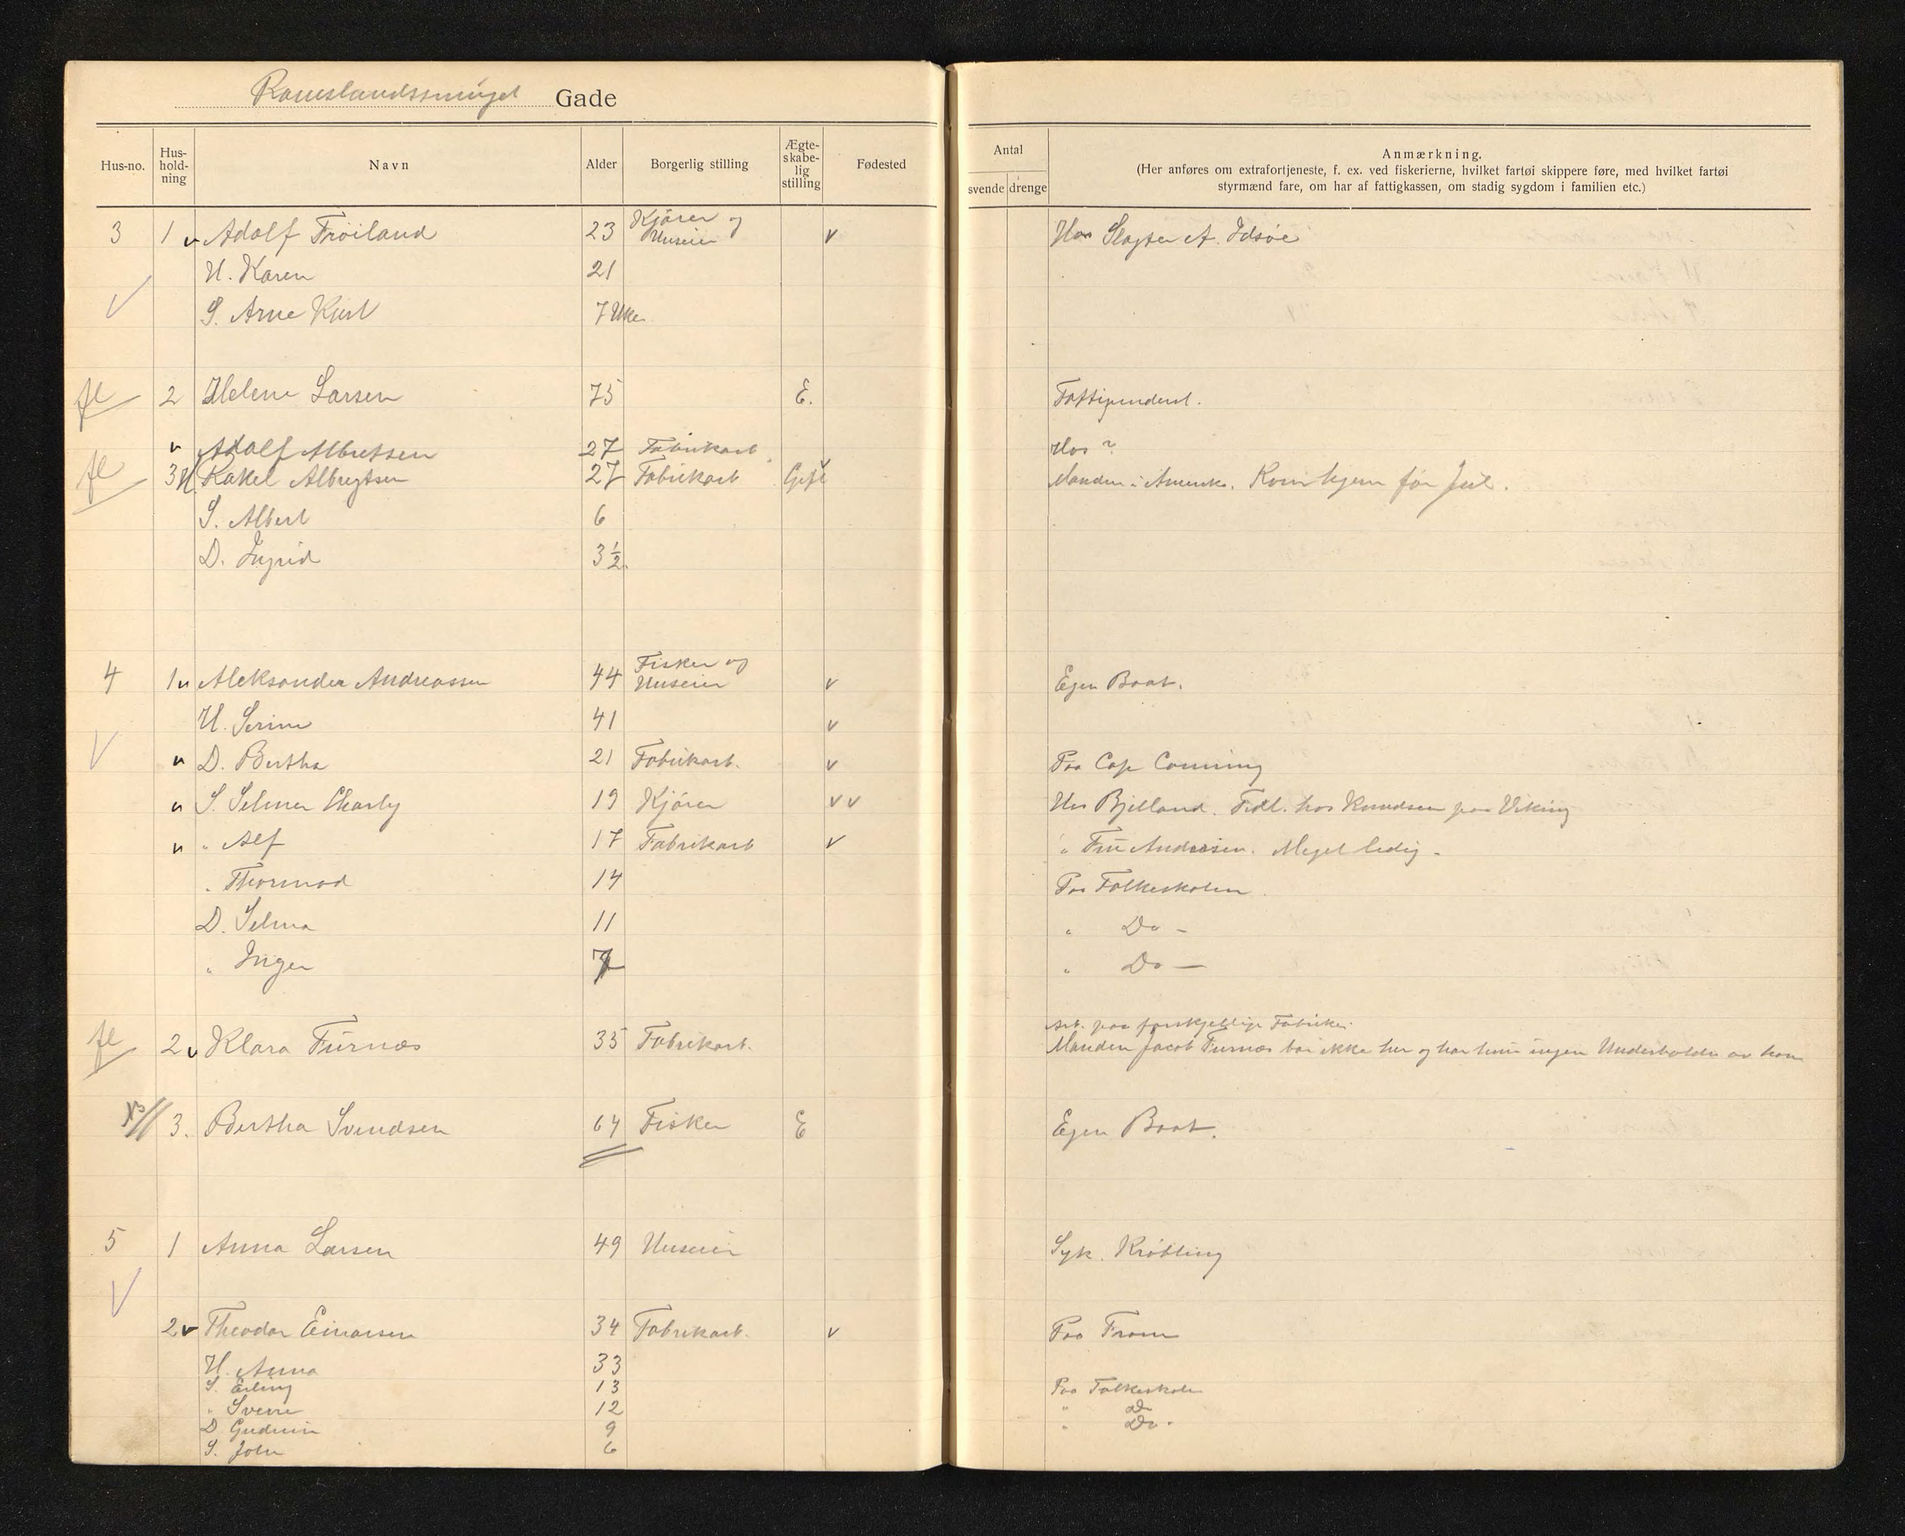 Ramslandssmuget Gade
Hus-no. Hus-hold-ning Navn Alder Borgerlig stilling Ægte-skabe-lig stilling Fødested Antal svende drenge Anmærkning.
(Her anføres om extrafortjeneste, f. ex. ved fiskerierne, hvilket fartøi skippere føre, med hvilket fartøi
styrmænd fare, om har af fattigkassen, om stadig sygdom i familien etc.)
3 1 v Adolf Frøiland 23 Kjører og Huseier v Hos Slagter A. Idsøe
H. Karen 21
S. Arne Kjist 7 Uke
fl 2 Helene Larsen 75 E. Fattigunderst.
v Adolf Albretsen 27 Fabrikarb. v Hos ?
fl 3 H. Rakel Albregtsen 27 Fabrikarb Gift Manden i Amerika. Kom hjem før Jul.
S. Albert 6
D. Ingrid 3 1/2
4 1 v Aleksander Andreassen 44 Fisker og Huseier v Egen Baat.
H. Serine 41 v
v D. Bertha 21 Fabrikarb. v Paa Cap Canning
v S. Selmer Charly 19 Kjører v v Hos Bjelland. Fidl. hos Knudsen paa Viking
v " Alf 17 Fabrikarb v " Fru Andersen. Meget ledig -
" Thormod 14 Paa Folkeskolen
D. Selma 11 " Do -
" Inger 7 " Do -
Arb. paa forskjellige Fabrikker.
fl 2 v Klara Furnæs 35 Fabrikarb. Manden Jacob Furnæs bor ikke her og har hun ingen Underholdn av ham
3. Bertha Svendsen 64 Fisker E Egen Baat.
5 1 Anna Larsen 49 Huseier Syk. Krøbling
2 v Theodor Einarsen 34 Fabrikarb. v Paa Fram
H. Anna 33
S. Erling 13 Paa Folkeskole
" Sverre 12 " Do
D. Gudrun 9 " Do -
S. John 6